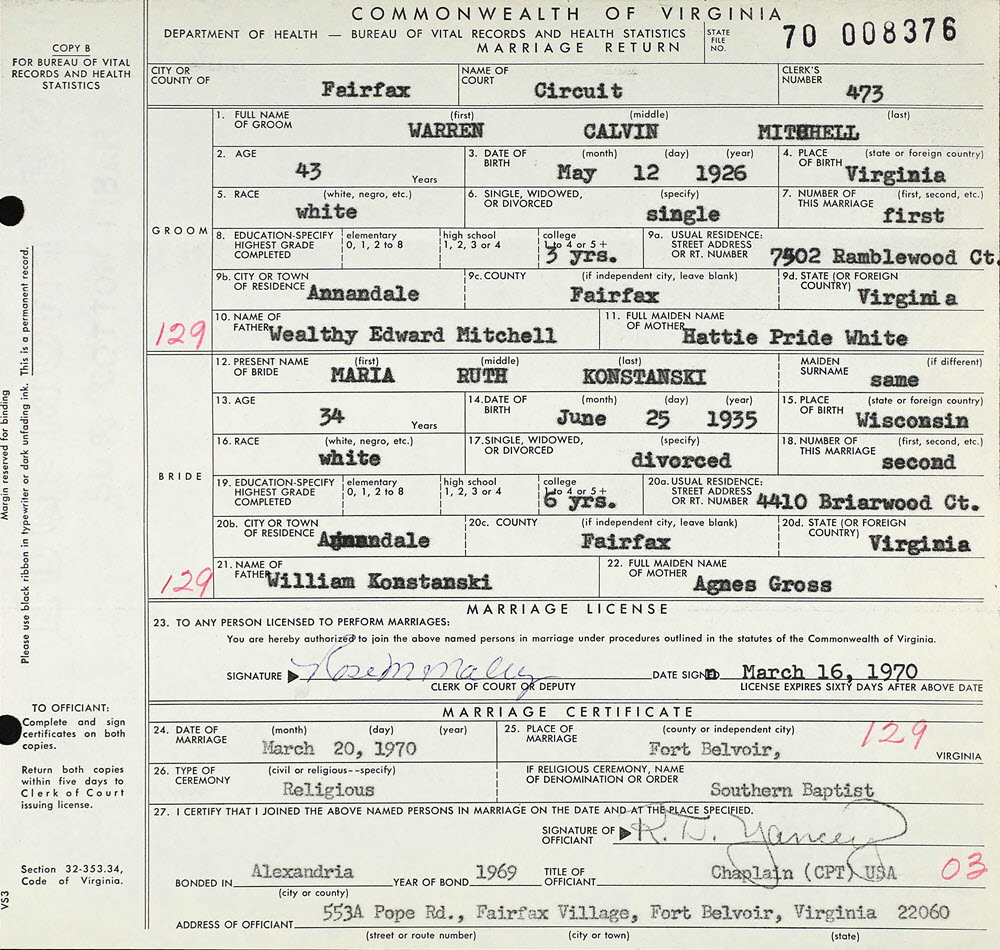 COMMONWEALTH OF VIRGINIA
DEPARTMENT OF HEALTH — BUREAU OF VITAL RECORDS AND HEALTH STATISTICS
MARRIAGE RETURN
STATE FILE NO. 70 008376
COPY B
FOR BUREAU OF VITAL
RECORDS AND HEALTH
STATISTICS
CITY OR COUNTY OF Fairfax NAME OF COURT Circuit CLERK'S NUMBER 473
GROOM
1. FULL NAME OF GROOM (first) WARREN (middle) CALVIN (last) MITCHELL
2. AGE 43 Years 3. DATE OF BIRTH (month) May (day) 12 (year) 1926 4. PLACE OF BIRTH (state or foreign country) Virginia
5. RACE (white, negro, etc.) white 6. SINGLE, WIDOWED, OR DIVORCED (specify) single 7. NUMBER OF THIS MARRIAGE (first, second, etc.) first
8. EDUCATION-SPECIFY HIGHEST GRADE COMPLETED elementary 0, 1, 2 to 8 high school 1, 2, 3 or 4 college 1 to 4 or 5+ 3 yrs. 9a. USUAL RESIDENCE: STREET ADDRESS OR RT. NUMBER 7502 Ramblewood Ct.
9b. CITY OR TOWN OF RESIDENCE Annandale 9c. COUNTY (if independent city, leave blank) Fairfax 9d. STATE (OR FOREIGN COUNTRY) Virginia
129 10. NAME OF FATHER Wealthy Edward Mitchell 11. FULL MAIDEN NAME OF MOTHER Hattie Pride White
BRIDE
12. PRESENT NAME OF BRIDE (first) MARIA (middle) RUTH (last) KONSTANSKI MAIDEN SURNAME (if different) same
13. AGE 34 Years 14. DATE OF BIRTH (month) June (day) 25 (year) 1935 15. PLACE OF BIRTH (state or foreign country) Wisconsin
16. RACE (white, negro, etc.) white 17. SINGLE, WIDOWED, OR DIVORCED (specify) divorced 18. NUMBER OF THIS MARRIAGE (first, second, etc.) second
19. EDUCATION-SPECIFY HIGHEST GRADE COMPLETED elementary 0, 1, 2 to 8 high school 1, 2, 3 or 4 college 1 to 4 or 5+ 6 yrs. 20a. USUAL RESIDENCE: STREET ADDRESS OR RT. NUMBER 4410 Briarwood Ct.
20b. CITY OR TOWN OF RESIDENCE Annandale 20c. COUNTY (if independent city, leave blank) Fairfax 20d. STATE (OR FOREIGN COUNTRY) Virginia
129 21. NAME OF FATHER William Konstanski 22. FULL MAIDEN NAME OF MOTHER Agnes Gross
MARRIAGE LICENSE
23. TO ANY PERSON LICENSED TO PERFORM MARRIAGES:
You are hereby authorized to join the above named persons in marriage under procedures outlined in the statutes of the Commonwealth of Virginia.
SIGNATURE Rose M Malley DATE SIGNED March 16, 1970
CLERK OF COURT OR DEPUTY LICENSE EXPIRES SIXTY DAYS AFTER ABOVE DATE
MARRIAGE CERTIFICATE
24. DATE OF MARRIAGE (month) (day) (year) March 20, 1970 25. PLACE OF MARRIAGE (county or independent city) Fort Belvoir, 129 VIRGINIA
26. TYPE OF CEREMONY (civil or religious--specify) Religious IF RELIGIOUS CEREMONY, NAME OF DENOMINATION OR ORDER Southern Baptist
27. I CERTIFY THAT I JOINED THE ABOVE NAMED PERSONS IN MARRIAGE ON THE DATE AND AT THE PLACE SPECIFIED.
SIGNATURE OF OFFICIANT R. D. Yancey
BONDED IN Alexandria YEAR OF BOND 1969 TITLE OF OFFICIANT Chaplain (CPT) USA 03
(city or county)
ADDRESS OF OFFICIANT 553A Pope Rd., Fairfax Village, Fort Belvoir, Virginia 22060
(street or route number) (city or town) (state)
Margin reserved for binding
Please use black ribbon in typewriter or dark unfading ink. This is a permanent record.
TO OFFICIANT:
Complete and sign
certificates on both
copies.
Return both copies
within five days to
Clerk of Court
issuing license.
Section 32-353.34,
Code of Virginia.
VS3